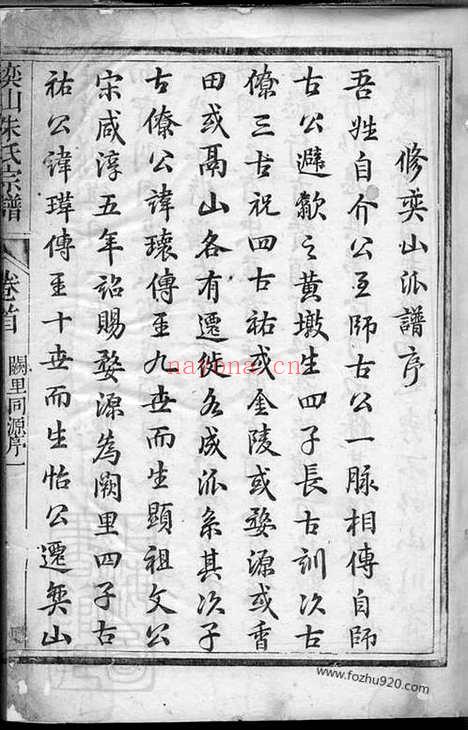 修奕山派譜序
吾姓自介公至師古公一脉相傳自師
古公避歙之黃墩生四子長古訓次古
僚三古祝四古祐或金陵或婺源或香
田或鬲山各有遷徙各成派系其次子
古僚公諱瓌傳至九世而生顯祖文公
宋咸淳五年詔賜婺源為闕里四子古
祐公諱瑋傳至十世而生怡公遷奕山
奕山朱氏宗譜
卷首
闕里同源序一
nayona.cn
www.fozhu920.com